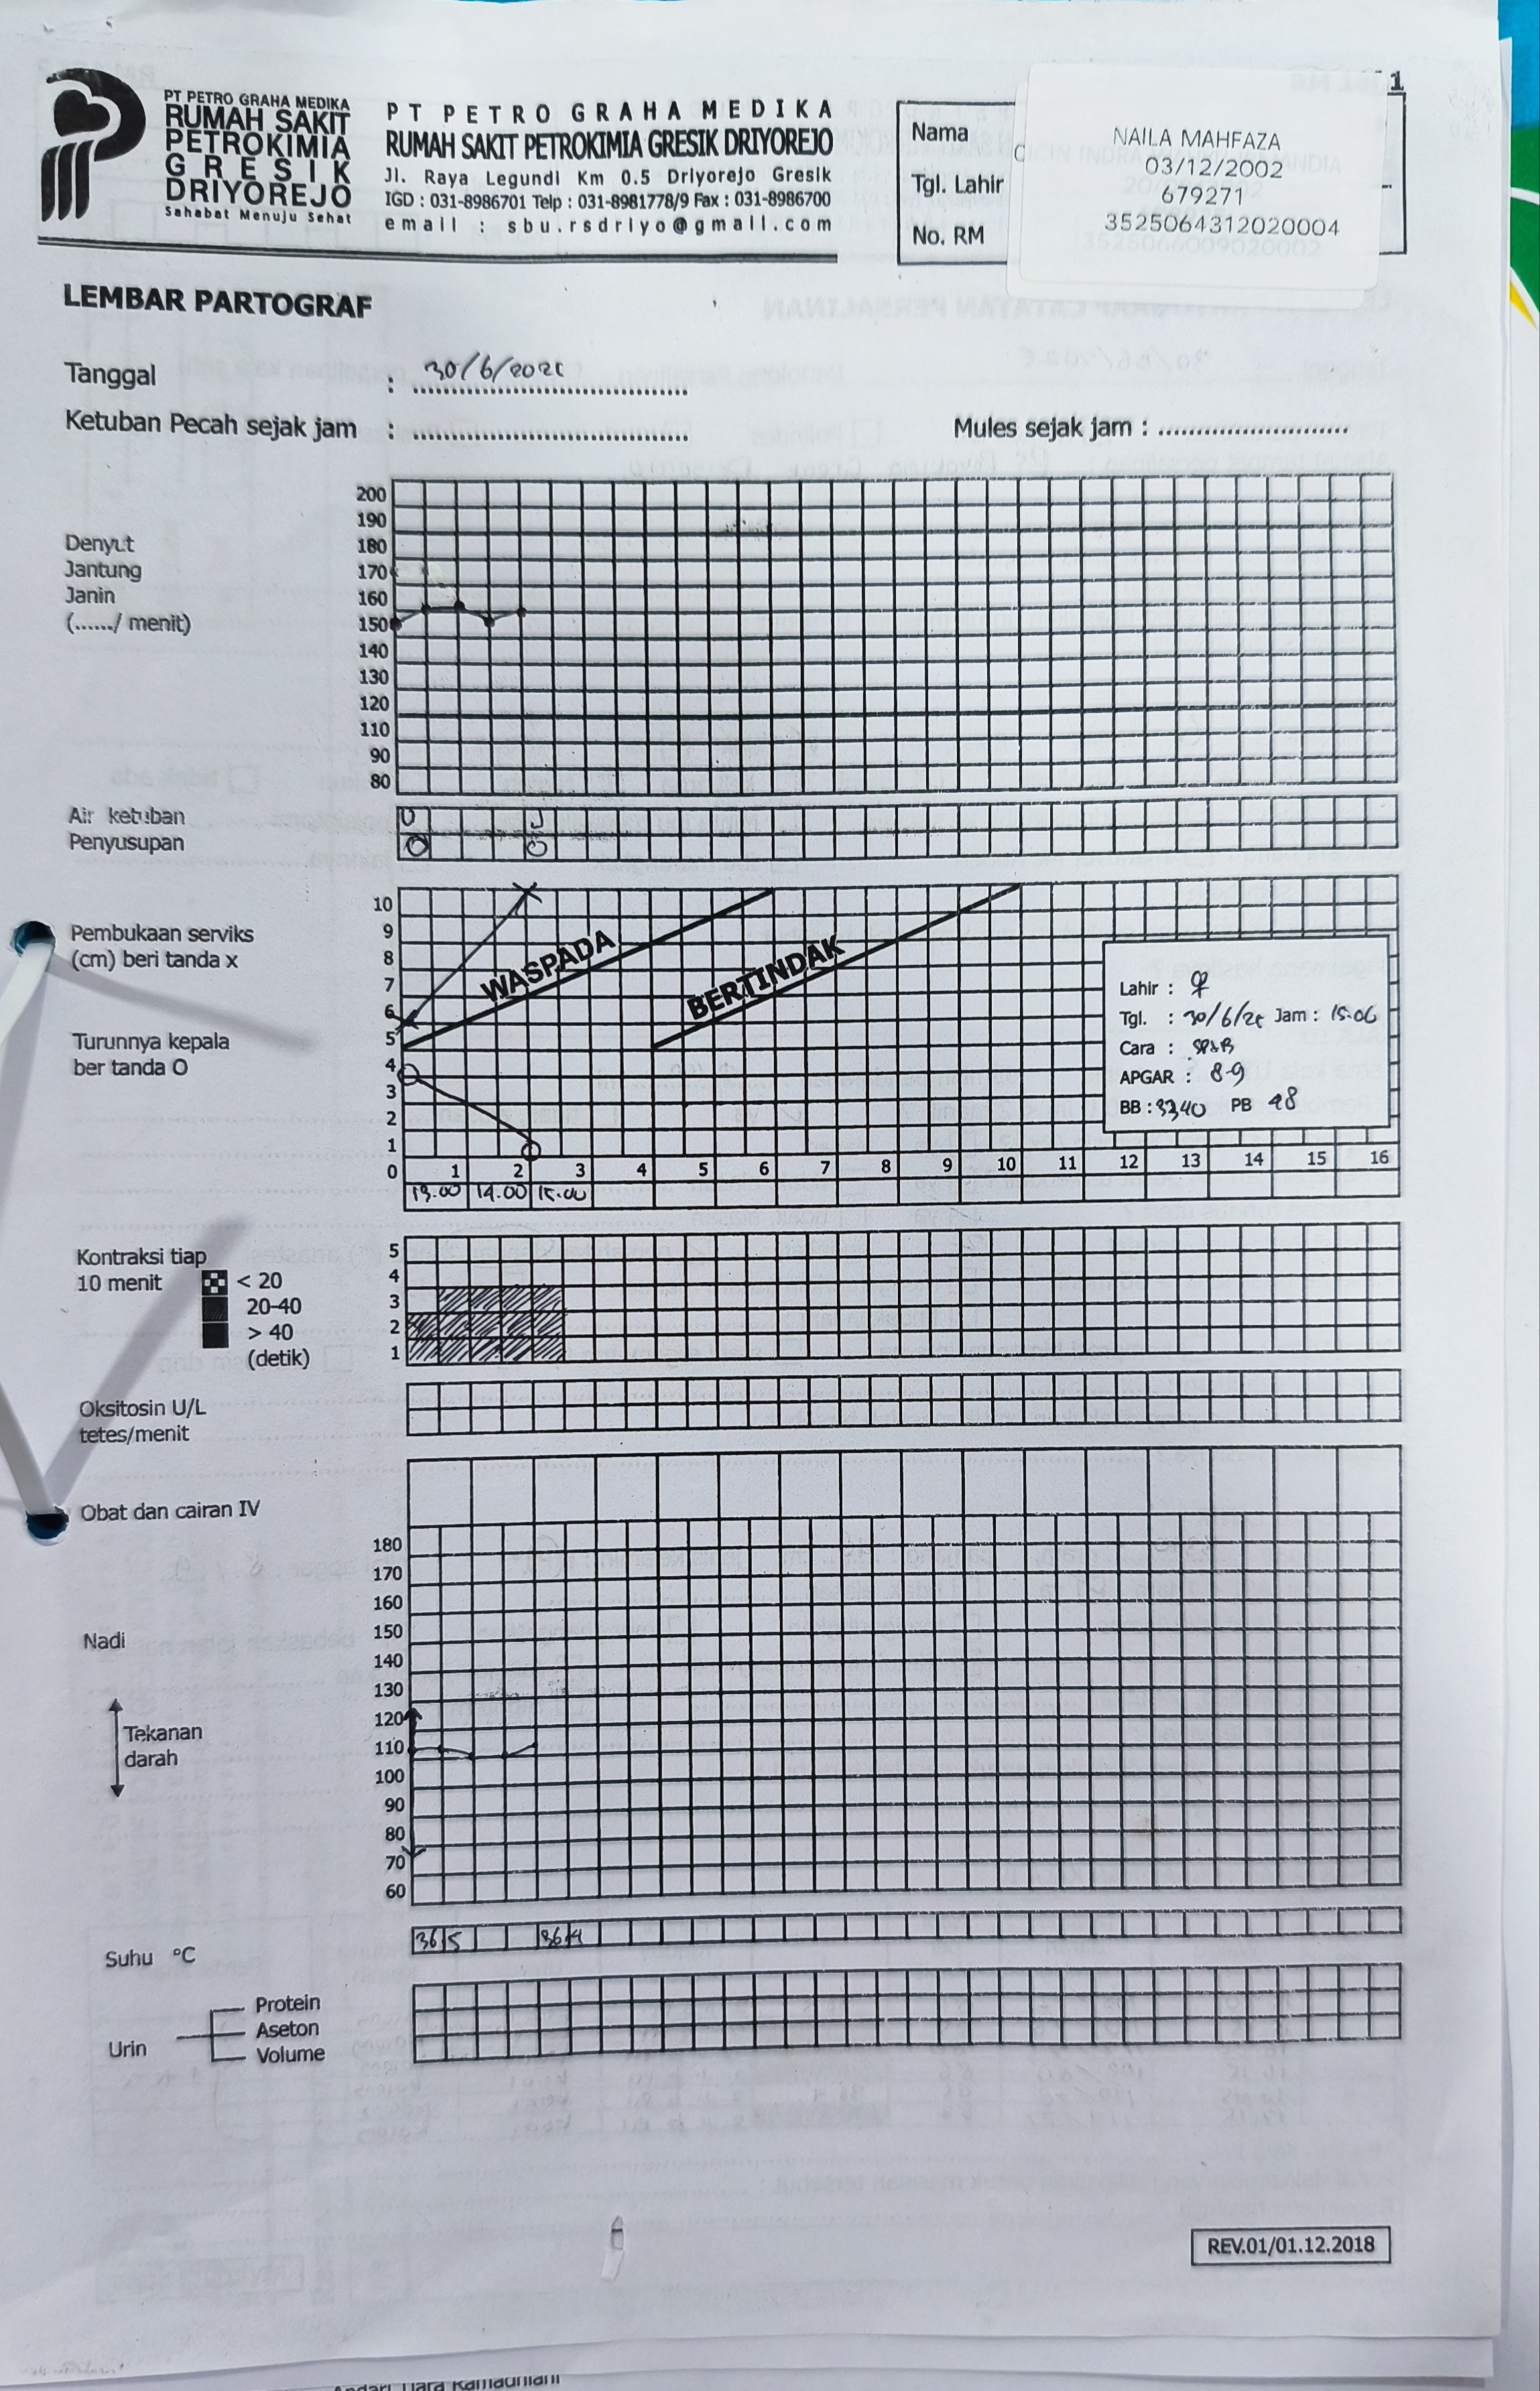 1
PT PETRO GRAHA MEDIKA
RUMAH SAKIT
PETROKIMIA
GRESIK
DRIYOREJO
Sahabat Menuju Sehat
PT PETRO GRAHA MEDIKA
RUMAH SAKIT PETROKIMIA GRESIK DRIYOREJO
Jl. Raya Legundi Km 0.5 Driyorejo Gresik
IGD : 031-8986701 Telp : 031-8981778/9 Fax : 031-8986700
email : sbu.rsdriyo@gmail.com
Nama
Tgl. Lahir
No. RM
NAILA MAHFAZA
03/12/2002
679271
3525064312020004
LEMBAR PARTOGRAF
Tanggal : 30/6/2025
Ketuban Pecah sejak jam : ....................
Mules sejak jam : ....................
Denyut
Jantung
Janin
(....../ menit)
200
190
180
170
160
150
140
130
120
110
90
80
Air ketuban U J
Penyusupan 0 0
Pembukaan serviks
(cm) beri tanda x
Turunnya kepala
ber tanda O
10
9
8
7
6
5
4
3
2
1
0
WASPADA
BERTINDAK
Lahir : ♀
Tgl. : 30/6/25 Jam : 15.06
Cara :
APGAR : 8-9
BB : 3340 PB 48
1 2 3 4 5 6 7 8 9 10 11 12 13 14 15 16
13.00 14.00 15.00
Kontraksi tiap
10 menit < 20
20-40
> 40
(detik)
5
4
3
2
1
Oksitosin U/L
tetes/menit
Obat dan cairan IV
Nadi
Tekanan
darah
180
170
160
150
140
130
120
110
100
90
80
70
60
Suhu °C 36,5 36,4
Urin
Protein
Aseton
Volume
REV.01/01.12.2018